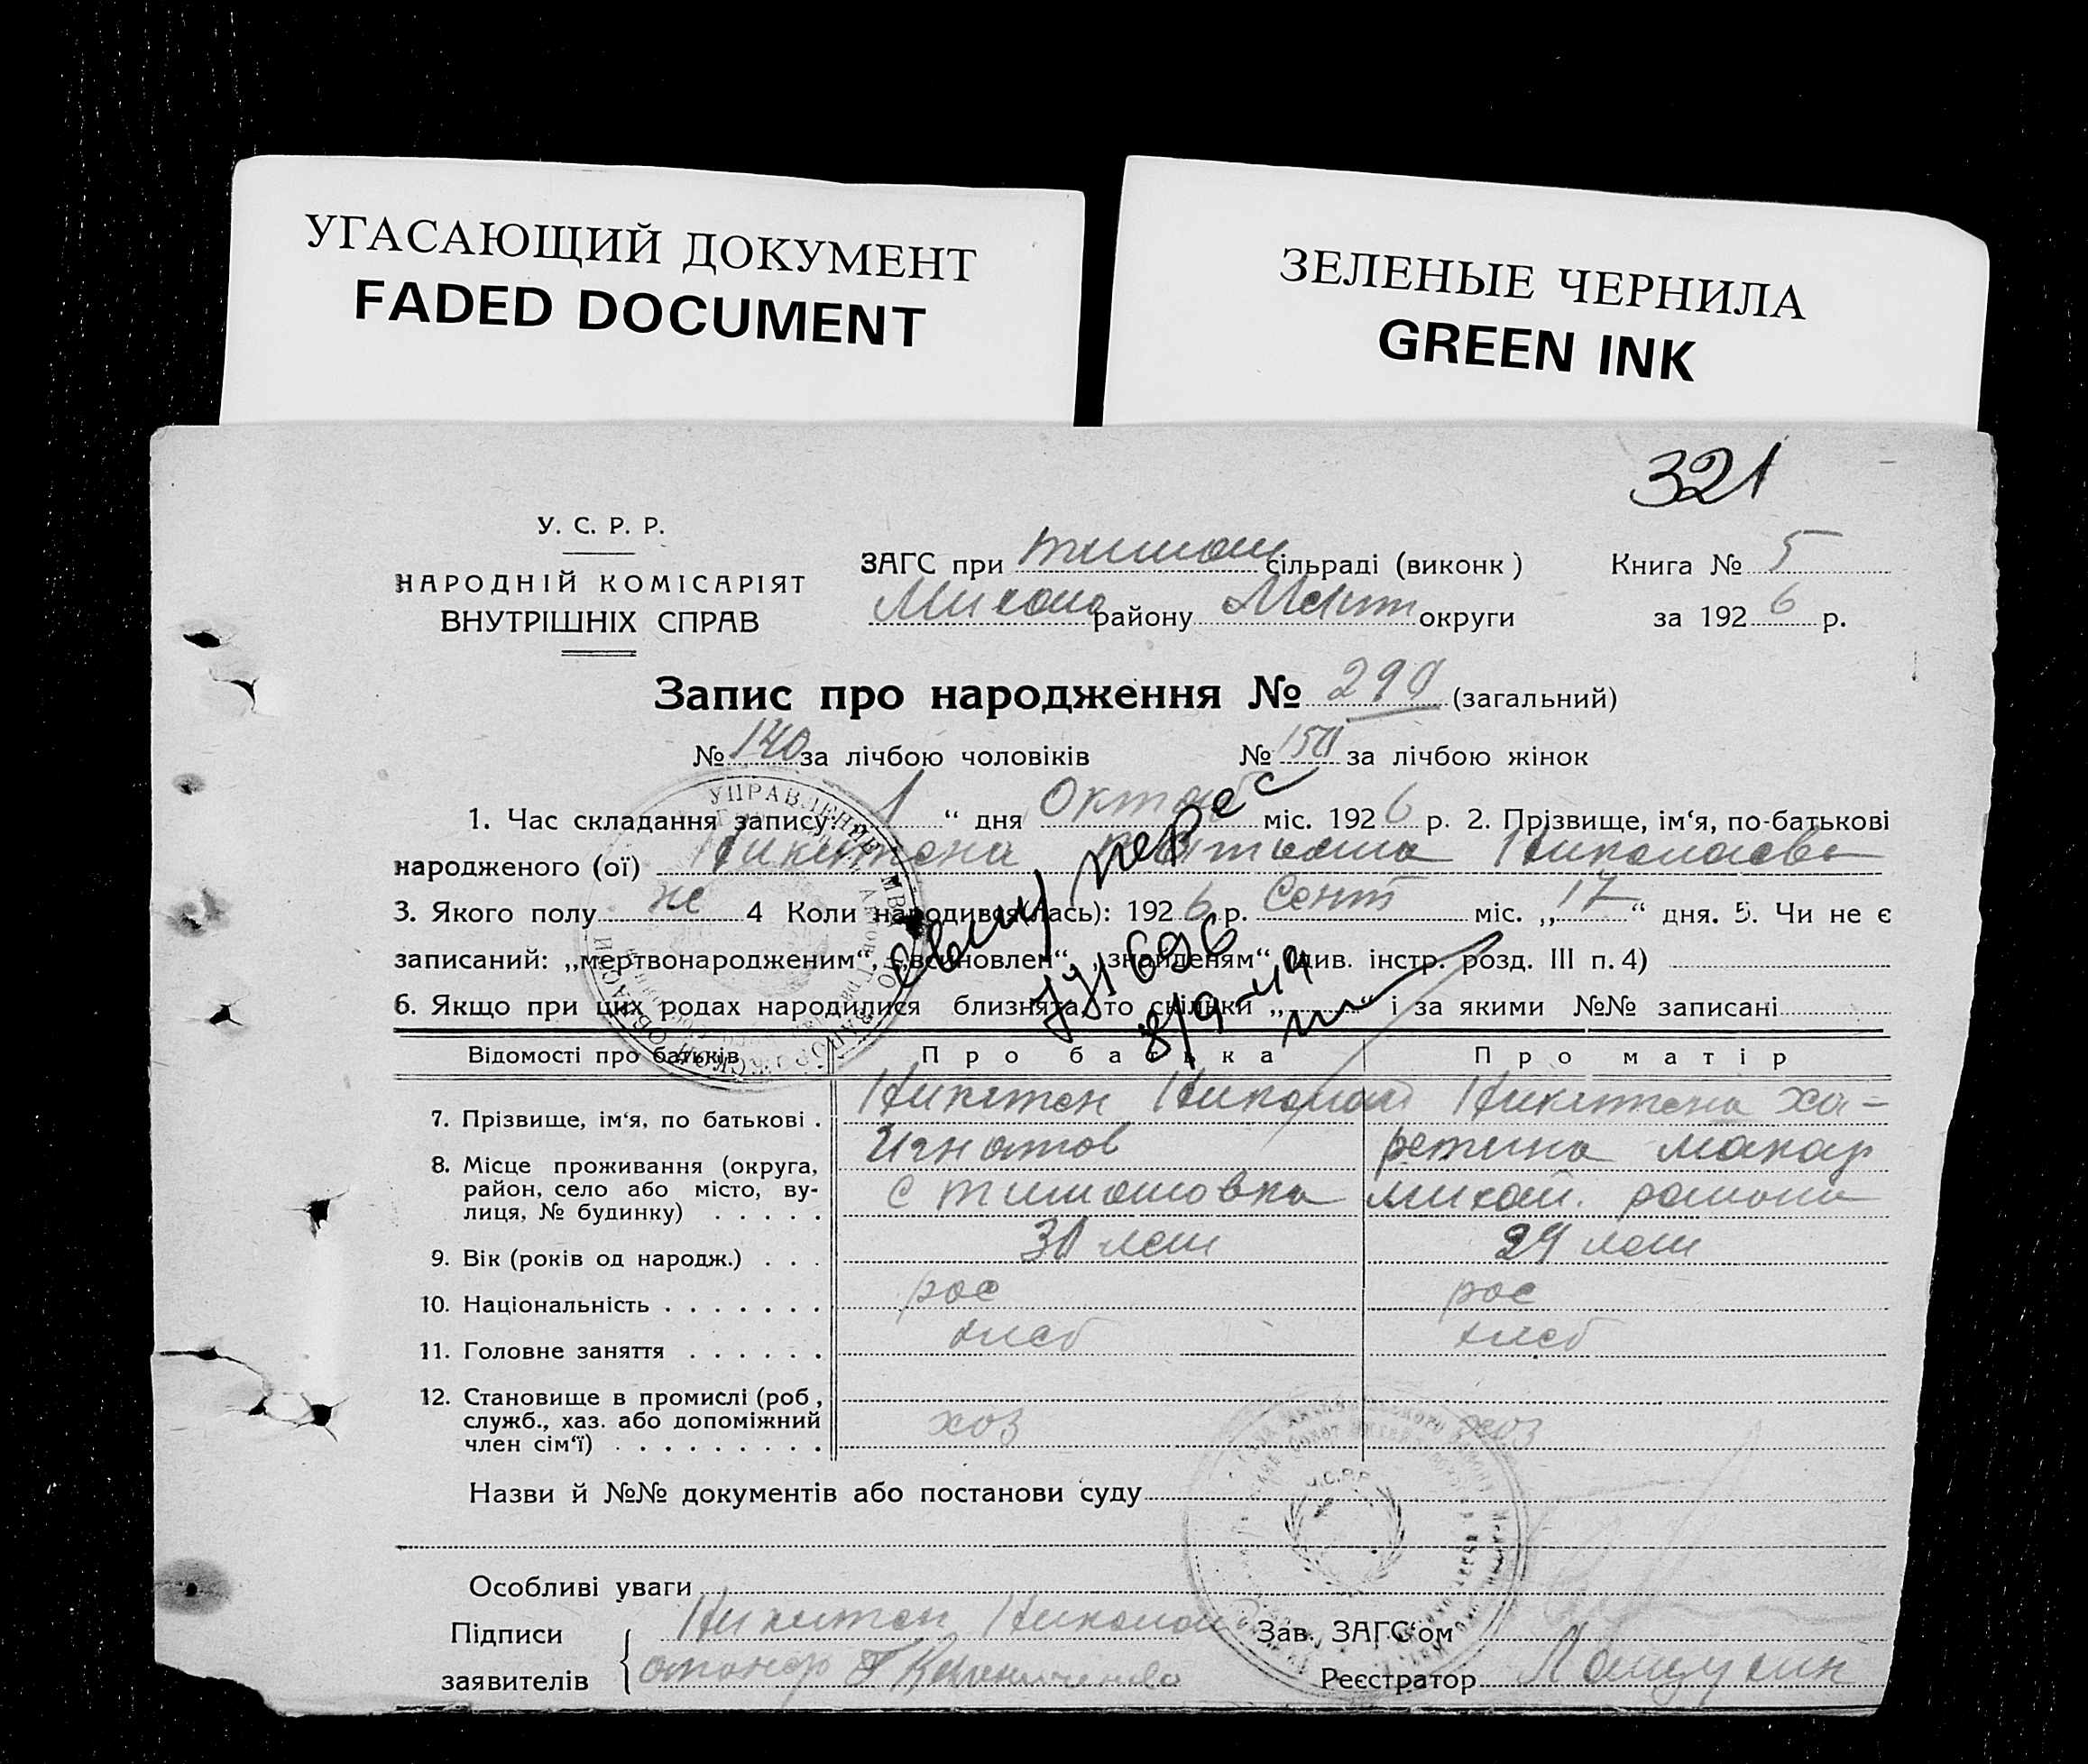 УГАСАЮЩИЙ ДОКУМЕНТ
FADED DOCUMENT
ЗЕЛЕНЫЕ ЧЕРНИЛА
GREEN INK
321
У. С. Р. Р.
НАРОДНІЙ КОМІСАРІЯТ
ВНУТРІШНІХ СПРАВ
ЗАГС при тимош сільраді (виконк)
району Меліт округи
Книга № 5
за 1926 р.
Запис про народження № 290 (загальний)
№ 140 за лічбою чоловіків № 150 за лічбою жінок
1. Час складання запису: „1“ дня Октяб міс. 1926 р. 2. Прізвище, ім‘я, по-батькові
народженого (ої) Николаевн
3. Якого полу же 4 Коли народився(лась): 1926 р. Сент міс. „17“ дня. 5. Чи не є
записаний: „мертвонародженим“, „всиновлен“, „знайденям“ (див. інстр. розд. III п. 4)
6. Якщо при цих родах народилися близнята, то скільки „ “ і за якими №№ записані
8/9-49
Відомості про батьків Про батька Про матір
7. Прізвище, ім‘я, по батькові . Николай Ха-
Игнатов ретина Макар
8. Місце проживання (округа,
район, село або місто, ву-
лиця, № будинку) . . . . . с Тимошовка михай. району
9. Вік (років од народж.) . . . 30 лет 29 лет
10. Національність . . . . . . . рос рос
11. Головне заняття . . . . . . хлеб хлеб
12. Становище в промислі (роб,
служб., хаз. або допоміжний
член сім‘ї) . . . . . . . . . хоз хоз
Назви й №№ документів або постанови суду
Особливі уваги
Підписи
заявителів
Николай
Зав. ЗАГС‘ом
Реєстратор